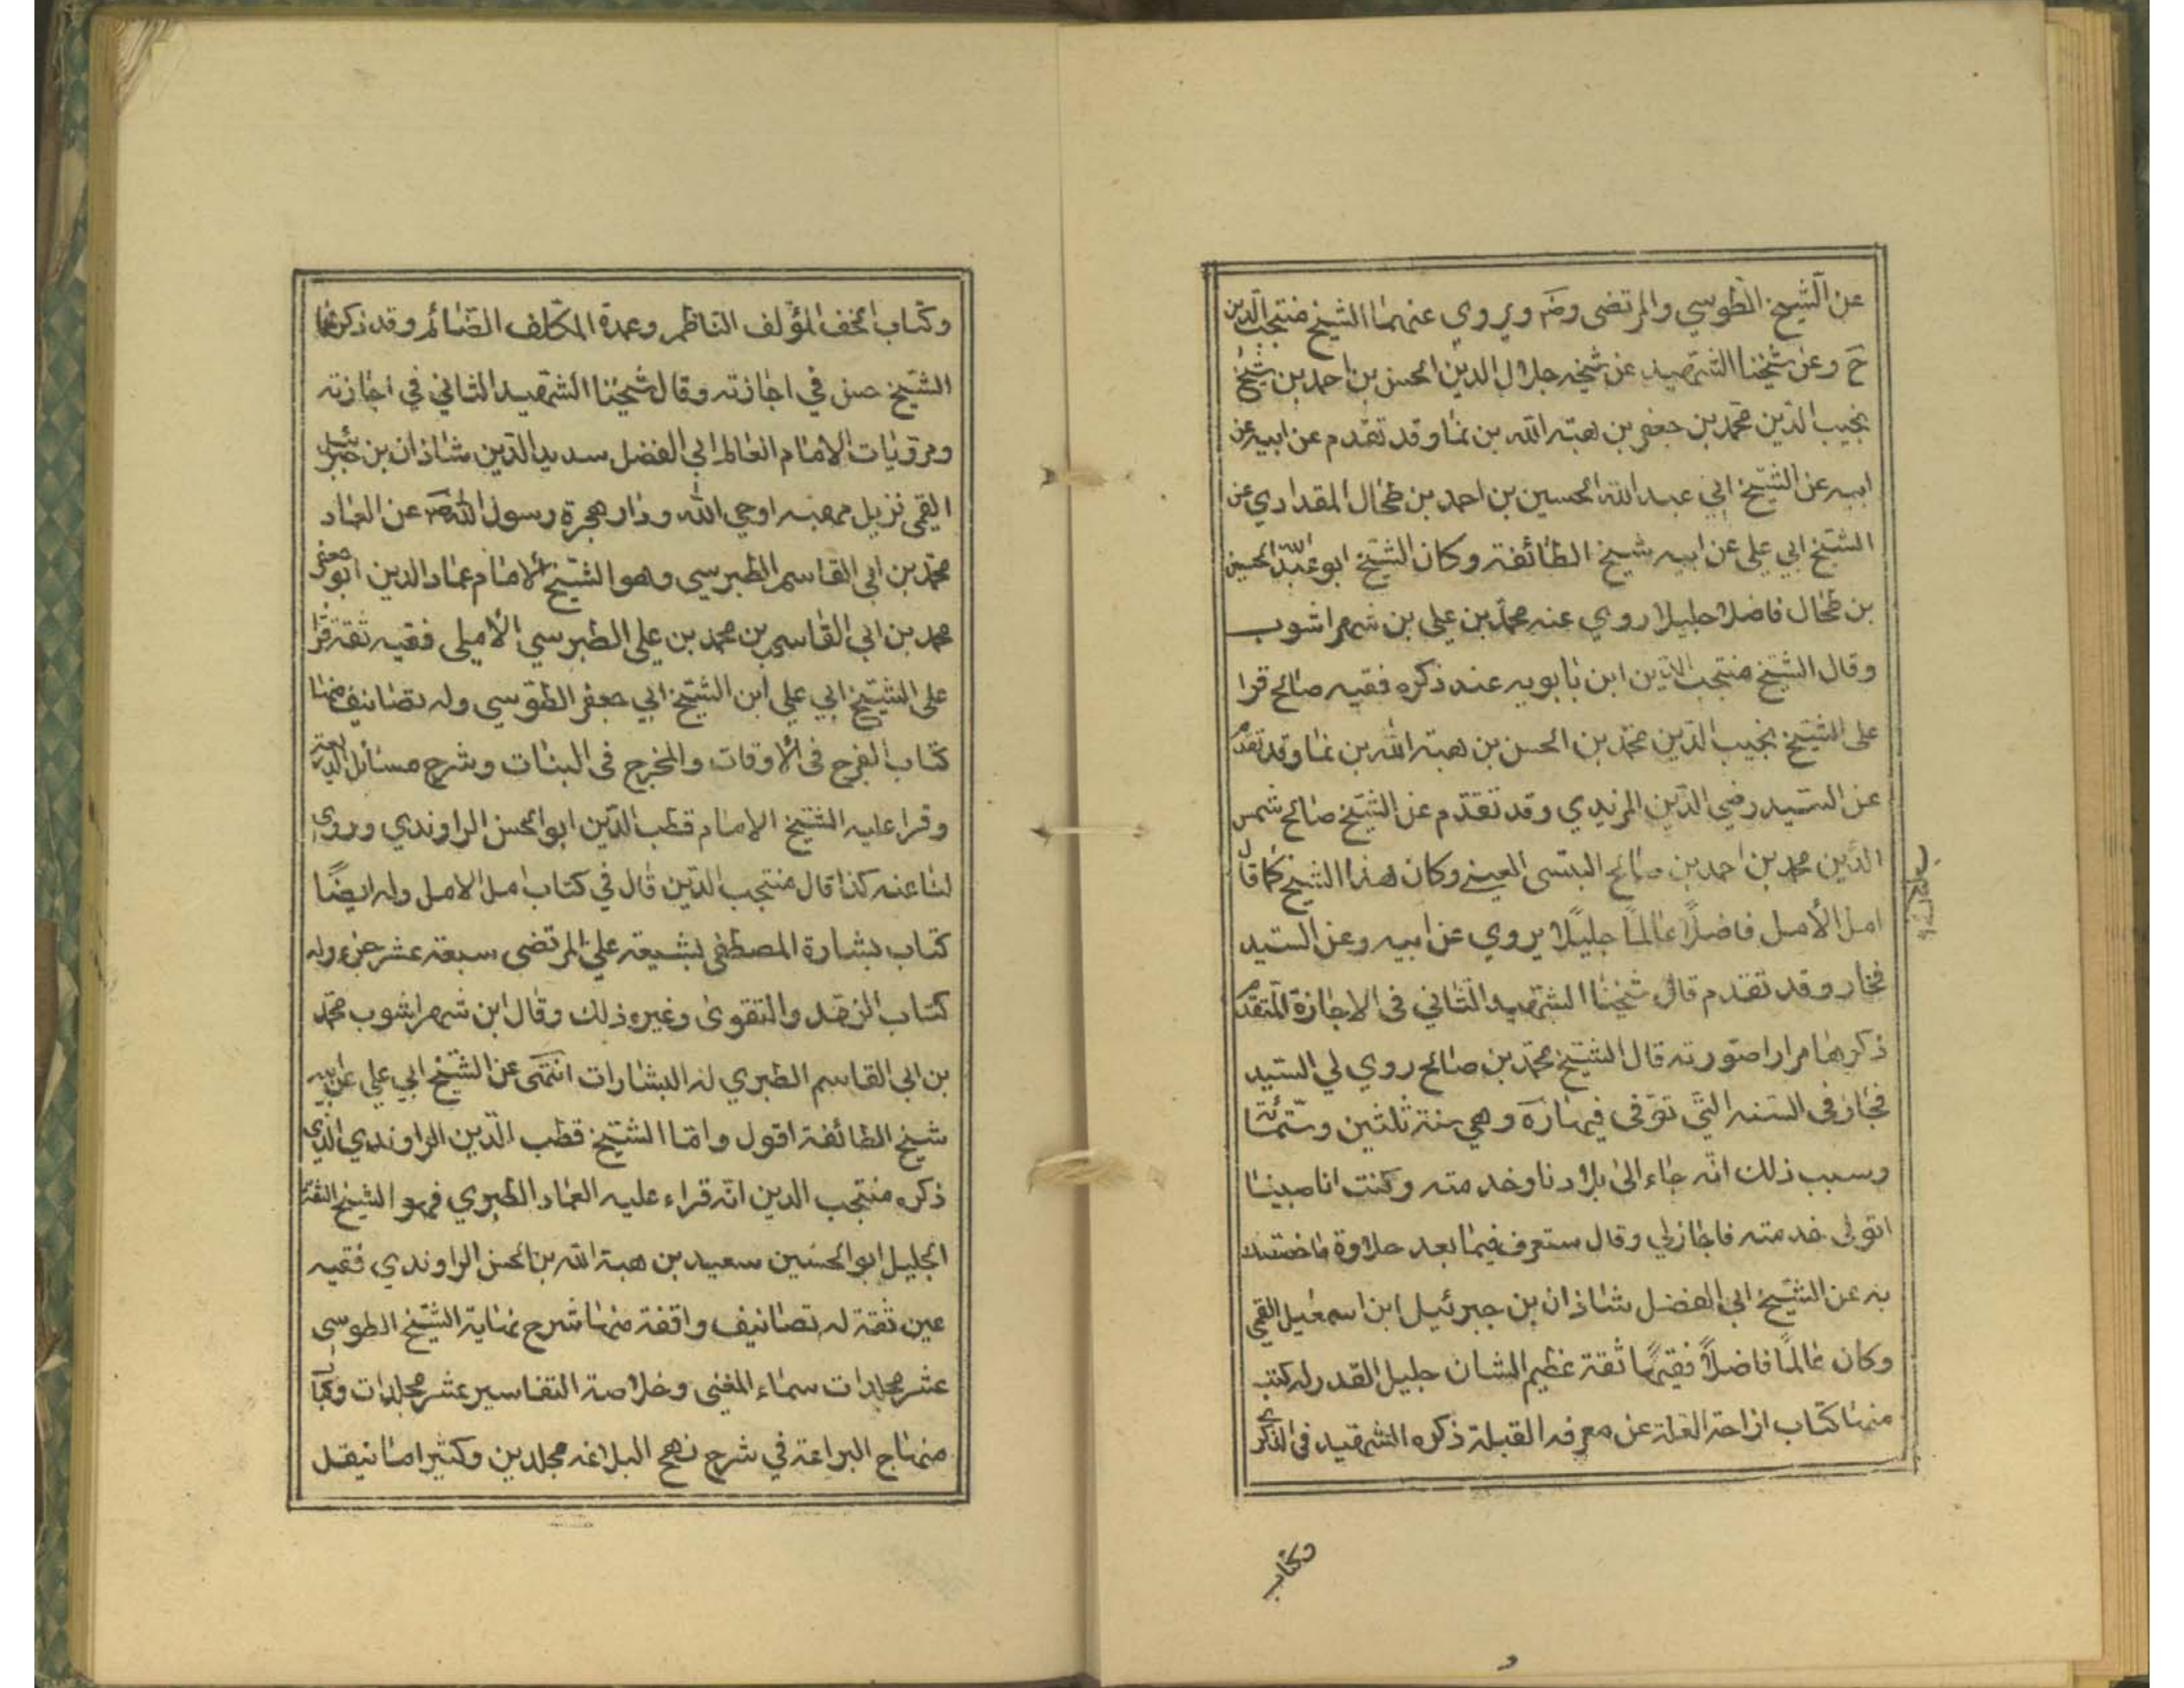 عن الشيخ الطوسي والمرتضى ويروي عنهما الشيخ منتجب الدين
ح وعن شيخنا الشهيد عن شيخه جلال الدين الحسن بن احمد بن شيخ
نجيب الدين محمد بن جعفر بن هبة الله بن نما وقد تقدم عن ابيه عن
ابيه عن الشيخ ابي عبد الله الحسين بن احمد بن طحال المقدادي عن
الشيخ ابي علي عن ابيه شيخ الطائفة وكان الشيخ ابو عبد الله الحسين
بن طحال فاضلا جليلا روي عنه محمد بن علي بن شهراشوب
وقال الشيخ منتجب الدين ابن بابويه عند ذكره فقيه صالح قرا
على الشيخ نجيب الدين محمد بن الحسن بن هبة الله بن نما وقد تقدم
عن السيد رضي الدين المزيدي وقد تقدم عن الشيخ صالح شمس
الدين محمد بن احمد بن صالح وكان هذا الشيخ كما قال
امل الأمل فاضلًا عالمًا جليلًا يروي عن ابيه وعن السيد
فخار وقد تقدم قال شيخنا الشهيد الثاني في الاجازة المتقدم
ذكرها مرارا صورته قال الشيخ محمد بن صالح روي لي السيد
فخار في السنه التي توفى فيها ره وهي سنة ثلثين وستمائة
وسبب ذلك انه جاء الى بلادنا وخدمته وكنت انا صبيا
اتولى خدمته فاجازلي وقال ستعرف فيما بعد حلاوة ما خصصتك
به عن الشيخ ابي الفضل شاذان بن جبرئيل ابن اسمعيل القمي
وكان عالمًا فاضلًا فقيهًا ثقة عظيم الشان جليل القدر له كتب
منها كتاب ازاحة العلة عن معرفه القبلة ذكره الشهيد في الذكرى
وكتاب
وكتاب تحف المؤلف الناظم وعمدة المكلف الصائم وقد ذكرهما
الشيخ حسن في اجازته وقال شيخنا الشهيد الثاني في اجازته
ومرويات الامام العالم ابي الفضل سديد الدين شاذان بن جبرئيل
القمي نزيل مهبط وحي الله ودار هجرة رسول الله ص عن العماد
محمد بن ابي القاسم الطبرسي وهو الشيخ الامام عماد الدين ابو جعفر
محمد بن ابي القاسم بن محمد بن علي الطبرسي الأملى فقيه ثقة قرا
على الشيخ ابي علي ابن الشيخ ابي جعفر الطوسي وله تصانيف منها
كتاب الفرج في الأوقات والمخرج في البنات وشرح مسائل الذريعة
وقرا عليه الشيخ الامام قطب الدين ابو الحسن الراوندي وروى
لنا عنه كذا قال منتجب الدين قال في كتاب امل الامل وله ايضًا
كتاب بشارة المصطفى لشيعة علي المرتضى سبعة عشر جزء وله
كتاب الزهد والتقوى وغيره ذلك وقال ابن شهراشوب محمد
بن ابى القاسم الطبري له البشارات انتهى عن الشيخ ابي علي عن ابيه
شيخ الطائفة اقول واما الشيخ قطب الدين الراوندي الذي
ذكره منتجب الدين انه قراء عليه العماد الطبري فهو الشيخ الثقة
الجليل ابو الحسين سعيد بن هبة الله بن الحسن الراوندي فقيه
عين ثقة له تصانيف واقفة منها شرح نهاية الشيخ الطوسي
عشر مجلدات سماء المغنى وخلاصة التفاسير عشر مجلدات وكتاب
منهاج البراعة في شرح نهج البلاغه مجلدين وكثيرا ما ينقل